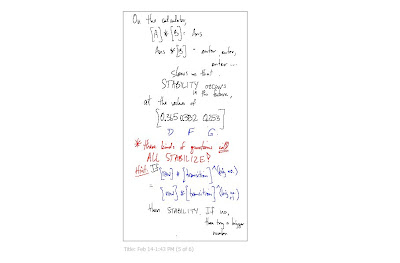 On the calculator,
[A] * [B] = Ans
Ans * [B] = enter, enter,
enter ...
shows us that ...
STABILITY occurs
in the future,
at the value of
[0.365 0.382 0.253]
D F G.
* these kinds of questions will
ALL STABILIZE!
Hint: If [row] * [transition]^(big no.)
= [row] * [transition]^(big no.)
then STABILITY. If no,
then try a bigger
number
Title: Feb 14-1:43 PM (5 of 6)